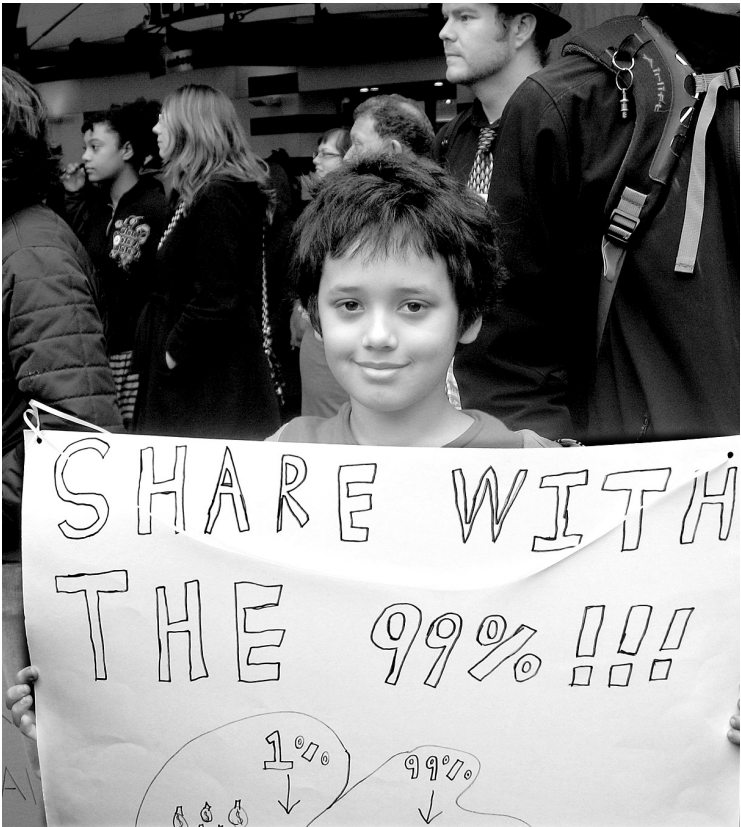 SHARE WITH
THE 99%!!!
1%
99%